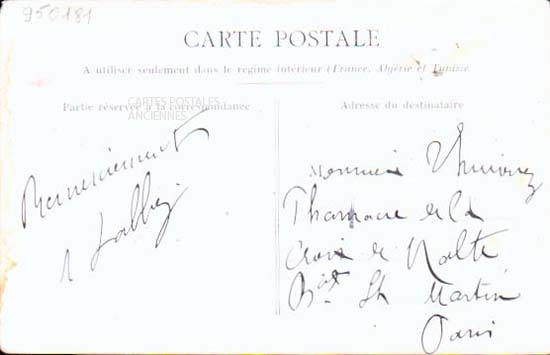 950181
CARTE POSTALE
A utiliser seulement dans le régime intérieur (France, Algérie et Tunisie
Partie réservée à la correspondance
CARTES POSTALES
ANCIENNES
Adresse du destinataire
Remerciements
Monsieur
Pharmacie de la
Croix de Malte
Bd St Martin
Paris